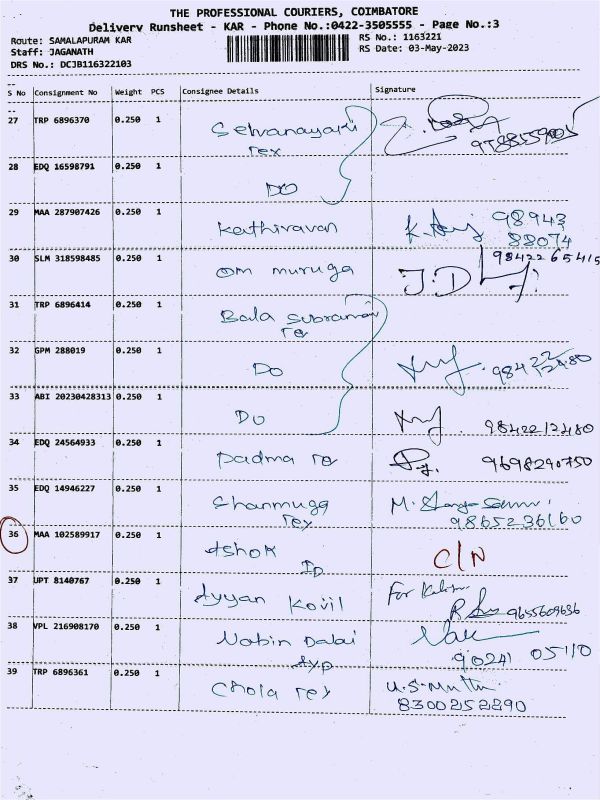 THE PROFESSIONAL COURIERS, COIMBATORE
Delivery Runsheet - KAR - Phone No.:0422-3505555 - Page No.:3
Route: SAMALAPURAM KAR
RS No.: 1163221
Staff: JAGANATH
RS Date: 03-May-2023
DRS No.: DCJB116322103
S No Consignment No Weight PCS Consignee Details Signature
27 TRP 6896370 0.250 1 Selvanayaki
Tex
28 EDQ 16598791 0.250 1
DO
29 MAA 287907426 0.250 1 Kathiravan 98943
88074
30 SLM 318598485 0.250 1 Om muruga J.D 9842265415
31 TRP 6896414 0.250 1 Bala Subramani
Tex
32 GPM 288019 0.250 1 DO
33 ABI 20230428313 0.250 1 DO 9842212480
34 EDQ 24564933 0.250 1 Padma Tex 9698290750
35 EDQ 14946227 0.250 1 Shanmuga
Tex 9865236160
36 MAA 102589917 0.250 1 Ashok C/N
ID
37 UPT 8140767 0.250 1 Ayyan Kovil For
9655609636
38 VPL 216908170 0.250 1 Nabin Dalai
Ayp 90241 05110
39 TRP 6896361 0.250 1 Chola Tex U.S.Muthu
8300252290